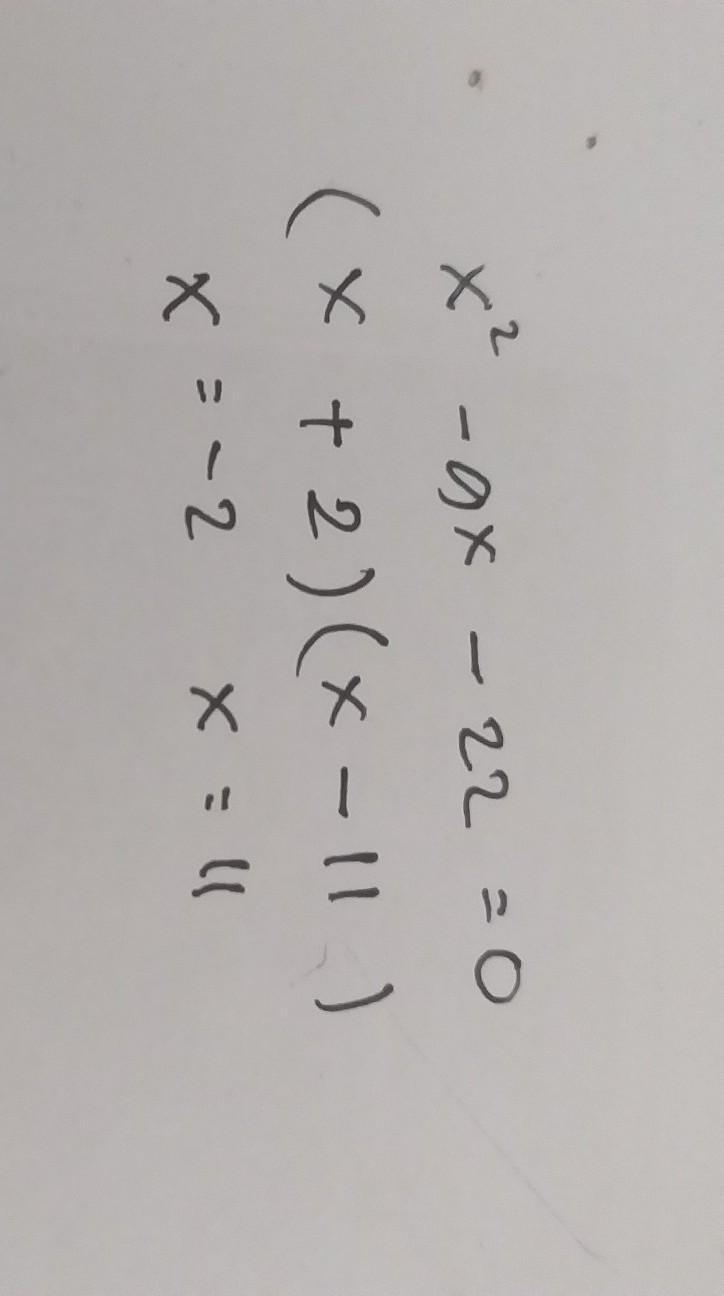 x² - 9x - 22 = 0
(x + 2)(x - 11)
x = -2 x = 11